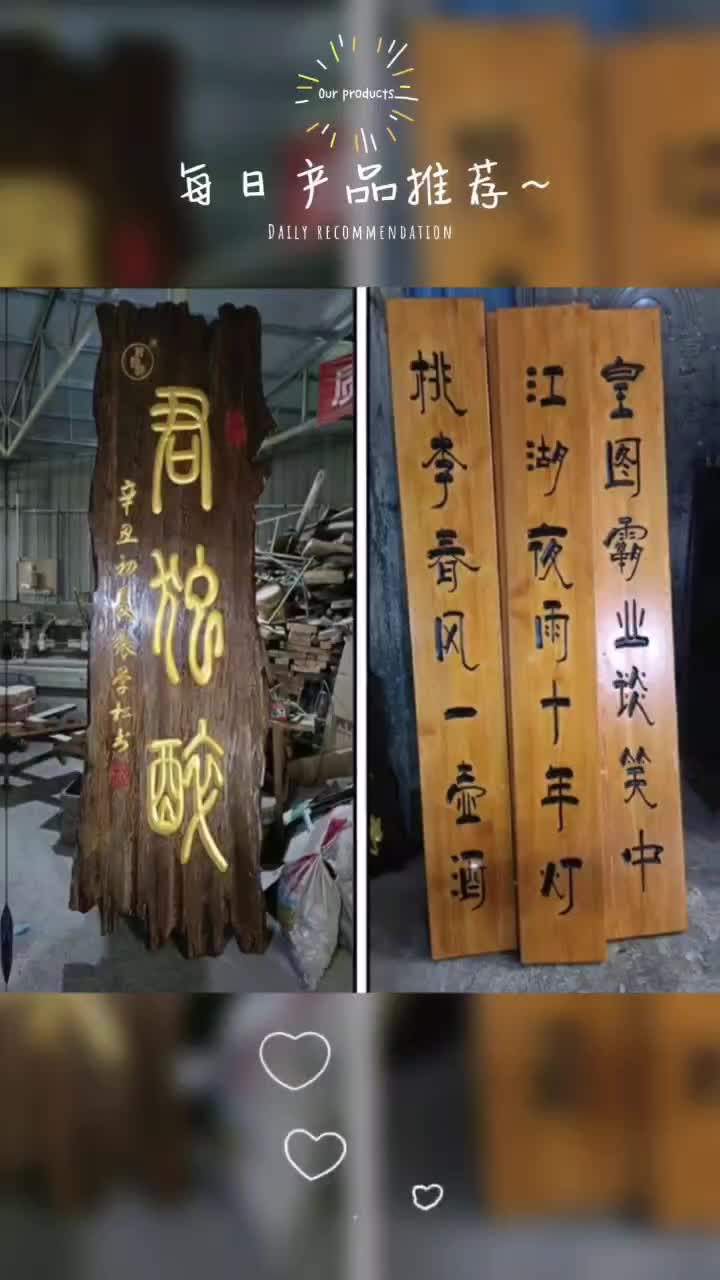 Our products
每日产品推荐~
DAILY RECOMMENDATION
君独醉
辛丑初夏张学仁书
桃李春风一壶酒
江湖夜雨十年灯
皇图霸业谈笑中